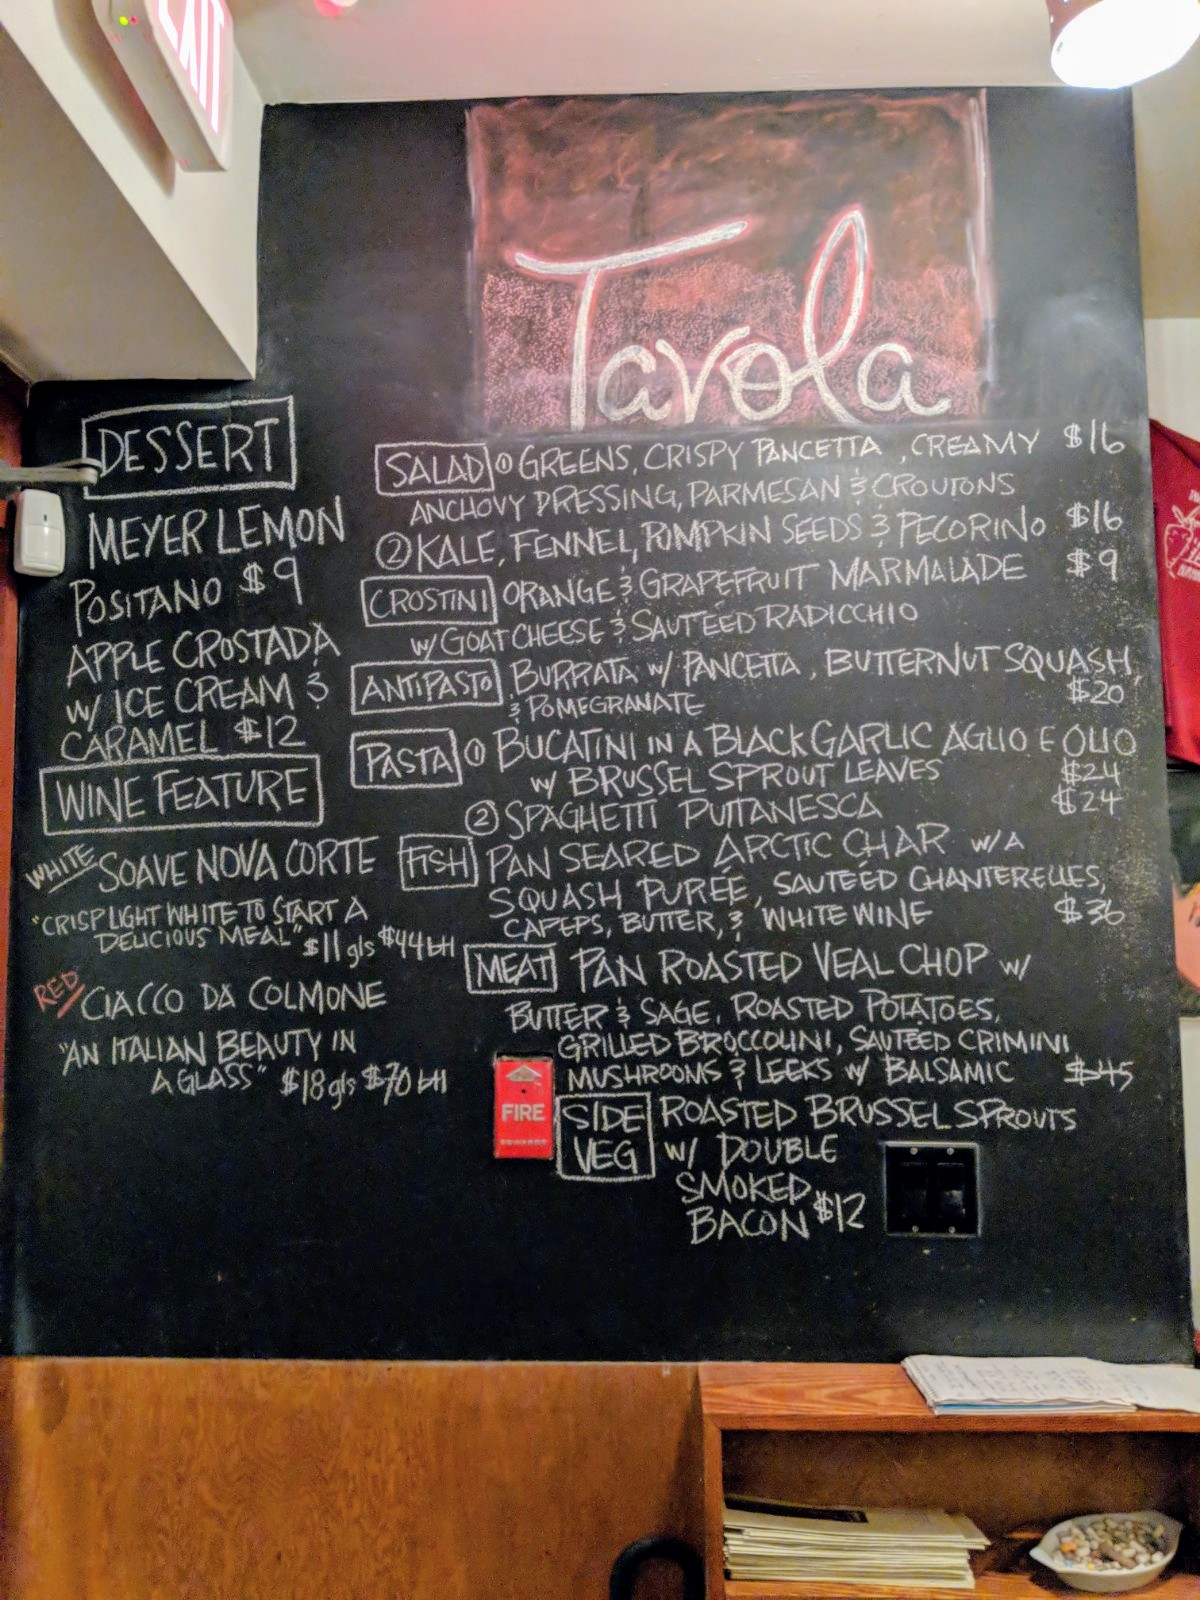 EXIT
Tavola
DESSERT
MEYER LEMON
POSITANO $9
APPLE CROSTADA
w/ ICE CREAM &
CARAMEL $12
WINE FEATURE
WHITE SOAVE NOVA CORTE
"CRISP LIGHT WHITE TO START A
DELICIOUS MEAL" $11 gls $44 btl
RED CIACCO DA COLMONE
"AN ITALIAN BEAUTY IN
A GLASS" $18 gls $70 btl
SALAD ① GREENS, CRISPY PANCETTA, CREAMY $16
ANCHOVY DRESSING, PARMESAN & CROUTONS
② KALE, FENNEL, PUMPKIN SEEDS & PECORINO $16
CROSTINI ORANGE & GRAPEFRUIT MARMALADE $9
w/ GOAT CHEESE & SAUTEED RADICCHIO
ANTIPASTO BURRATA w/ PANCETTA, BUTTERNUT SQUASH,
& POMEGRANATE $20
PASTA ① BUCATINI IN A BLACK GARLIC AGLIO E OLIO
w/ BRUSSEL SPROUT LEAVES $24
② SPAGHETTI PUTTANESCA $24
FISH PAN SEARED ARCTIC CHAR w/ A
SQUASH PURÉE, SAUTÉED CHANTERELLES,
CAPEPS, BUTTER, & WHITE WINE $36
MEAT PAN ROASTED VEAL CHOP w/
BUTTER & SAGE, ROASTED POTATOES,
GRILLED BROCCOLINI, SAUTÉED CRIMINI
MUSHROOMS & LEEKS w/ BALSAMIC $45
SIDE VEG ROASTED BRUSSEL SPROUTS
w/ DOUBLE
SMOKED
BACON $12
FIRE
EDWARDS